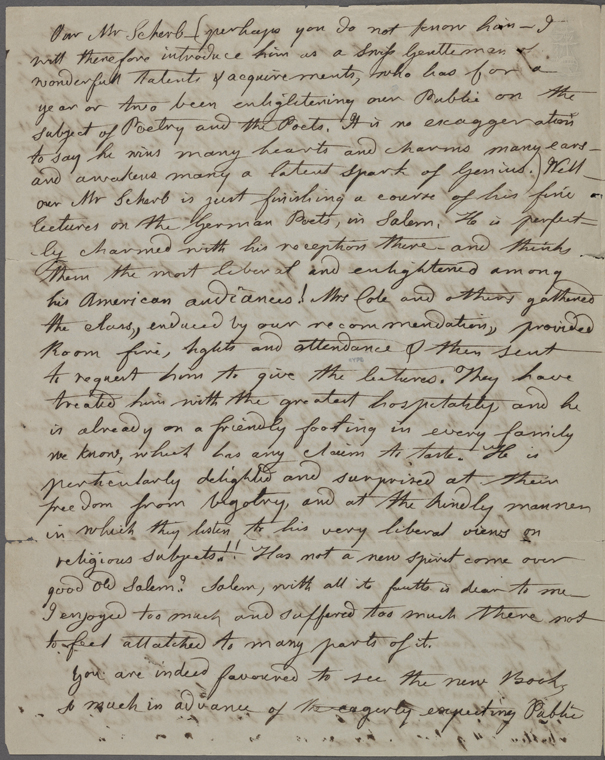 Our Mr Scherb—(perhaps you do not know him—I
will therefore introduce him as a Swiss Gentleman of
wonderful talents & acquirements, who has for a
year or two been enlightening our Public on the
subject of Poetry and the Poets. It is no exaggeration
to say he wins many hearts and charms many ears—
and awakens many a latent spark of Genius.) Well—
our Mr Scherb is just finishing a course of his fine
lectures on the German Poets, in Salem. He is perfect-
ly charmed with his reception there—and thinks
them the most liberal and enlightened among
his American audiances! Mrs Cole and others gathered
the class, enduced by our recommendation, provided
Room fire, lights and attendance & then sent
to request him to give the lectures. They have
treated him with the greatest hospitality and he
is already on a friendly footing in every family
we know, which has any claim to taste. He is
particularly delighted and surprised at their
freedom from bigotry, and at the kindly manner
in which they listen to his very liberal views on
religious subjects!! Has not a new spirit come over
good old Salem? Salem, with all its faults is dear to me—
I enjoyed too much and suffered too much there not
to feel attatched to many parts of it.
You are indeed favoured to see the new Book,
so much in advance of the eagerly expecting Public